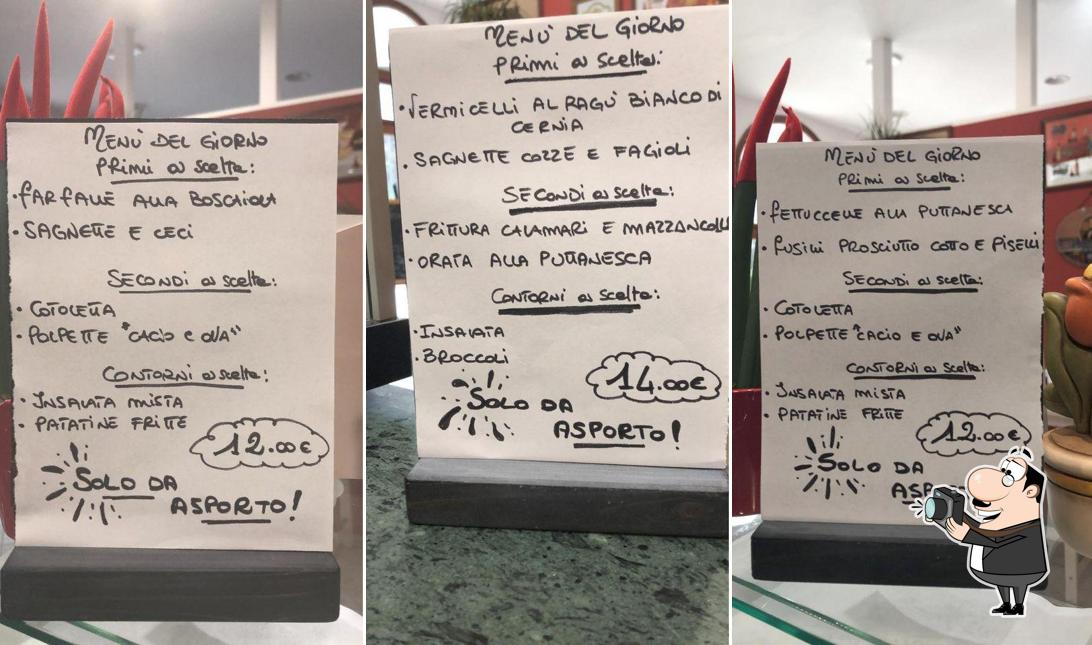 MENÙ DEL GIORNO
PRIMI a scelta:
• FARFALLE ALLA BOSCAIOLA
• SAGNETTE E CECI
SECONDI a scelta:
• COTOLETTA
• POLPETTE "CACIO E OVA"
CONTORNI a scelta:
• INSALATA MISTA
• PATATINE FRITTE
12.00€
SOLO DA
ASPORTO!
MENÙ DEL GIORNO
PRIMI a scelta:
• VERMICELLI AL RAGÙ BIANCO DI
CERNIA
• SAGNETTE COZZE E FAGIOLI
SECONDI a scelta:
• FRITTURA CALAMARI E MAZZANCOLLE
• ORATA ALLA PUTTANESCA
CONTORNI a scelta:
• INSALATA
• BROCCOLI
14.00€
SOLO DA
ASPORTO!
MENÙ DEL GIORNO
PRIMI a scelta:
• FETTUCCELLE ALLA PUTTANESCA
• FUSILLI PROSCIUTTO COTTO E PISELLI
SECONDI a scelta:
• COTOLETTA
• POLPETTE "CACIO E OVA"
CONTORNI a scelta:
• INSALATA MISTA
• PATATINE FRITTE
12.00€
SOLO DA